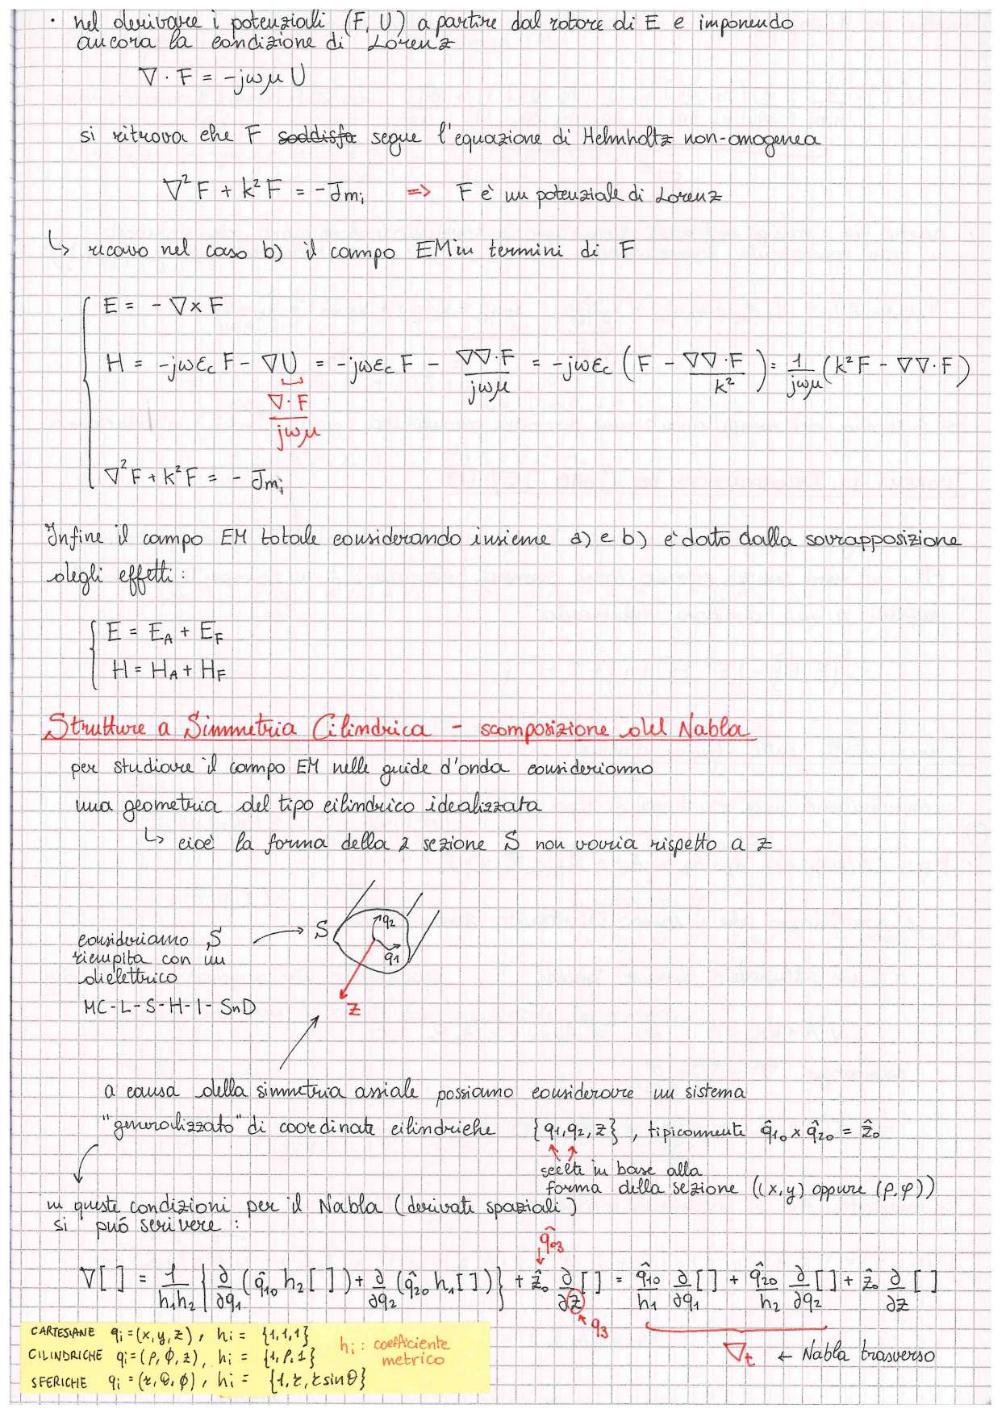 · nel derivare i potenziali (F, U) a partire dal rotore di E e imponendo
ancora la condizione di Lorenz
∇ · F = -jωμ U
si ritrova che F soddisfa segue l'equazione di Helmholtz non-omogenea
∇²F + k²F = -Jmi => F è un potenziale di Lorenz
↳ ricavo nel caso b) il campo EM in termini di F
E = - ∇×F
H = -jωεc F - ∇U = -jωεc F - ∇∇·F / jωμ = -jωεc (F - ∇∇·F / k²) = 1/jωμ (k²F - ∇∇·F)
∇·F / jωμ
∇²F + k²F = - Jmi
Infine il campo EM totale considerando insieme a) e b) è dato dalla sovrapposizione
degli effetti:
E = EA + EF
H = HA + HF
Strutture a Simmetria Cilindrica - scomposizione del Nabla
per studiare il campo EM nelle guide d'onda consideriamo
una geometria del tipo cilindrico idealizzata
↳ cioè la forma della 2 sezione S non varia rispetto a z
consideriamo S
riempita con un
dielettrico
MC-L-S-H-I-SnD
S
q2
q1
z
a causa della simmetria assiale possiamo considerare un sistema
"generalizzato" di coordinate cilindriche {q1,q2,z}, tipicamente q̂10 × q̂20 = ẑ0
scelte in base alla
forma della sezione ((x,y) oppure (ρ,φ))
in queste condizioni per il Nabla (derivati spaziali)
si può scrivere :
q̂03
∇[ ] = 1/h1h2 { ∂/∂q1 (q̂10 h2 [ ]) + ∂/∂q2 (q̂20 h1 [ ]) } + ẑ0 ∂/∂z [ ] = q̂10/h1 ∂/∂q1 [ ] + q̂20/h2 ∂/∂q2 [ ] + ẑ0 ∂/∂z [ ]
q3
∇t ← Nabla trasverso
CARTESIANE qi=(x,y,z), hi = {1,1,1}
CILINDRICHE qi=(ρ,φ,z), hi = {1,ρ,1}
SFERICHE qi=(r,θ,φ), hi = {1,r,r sinθ}
hi : coefficiente
metrico